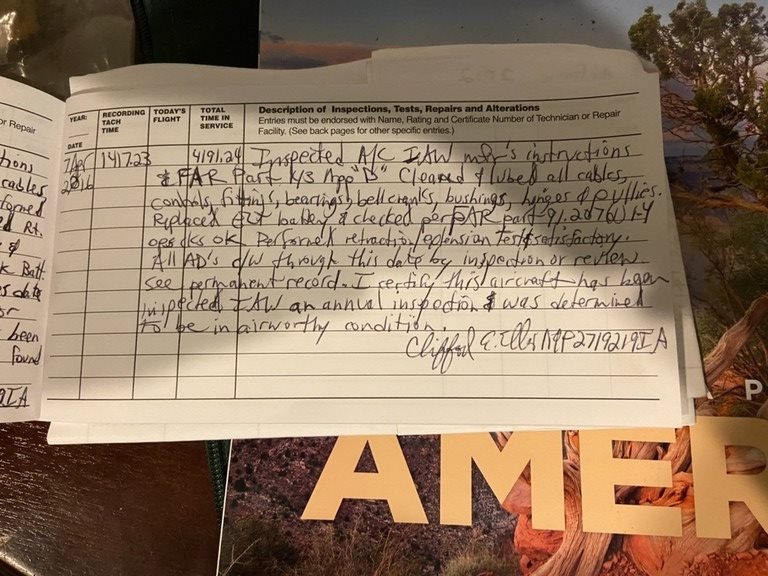 or Repair
tions
cables
formed
d Rt.
&
k Batt
s date
or
been
found
9IA
YEAR:
DATE
RECORDING TACH TIME
TODAY'S FLIGHT
TOTAL TIME IN SERVICE
Description of Inspections, Tests, Repairs and Alterations
Entries must be endorsed with Name, Rating and Certificate Number of Technician or Repair
Facility. (See back pages for other specific entries.)
7 Apr 1417.23 4191.24 Inspected A/C IAW mfr's instructions
2016 & FAR Part 43 App "D" Cleaned & lubed all cables,
controls, fittings, bearings, bellcranks, bushings, hinges & pullies.
Replaced ELT battery & checked per FAR part 91.207(d) 1-4
ops cks ok Performed retraction/extension Test satisfactory.
All AD's c/w through this date by inspection or review
see permanent record. I certify this aircraft has been
inspected IAW an annual inspection & was determined
to be in airworthy condition.
Clifford E. A&P 2719219IA
P
AMER